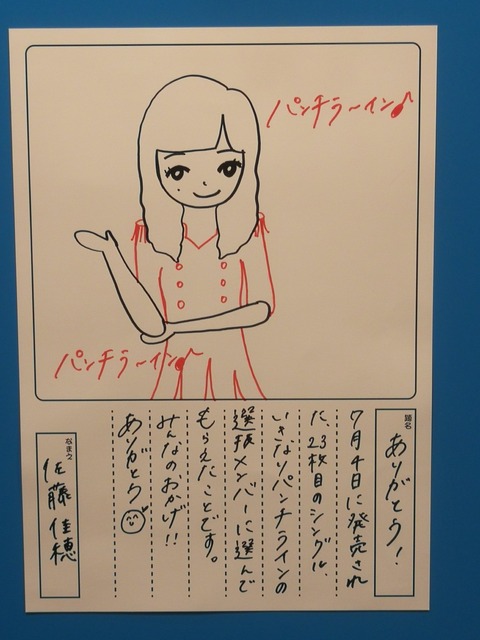 パンチラ〜イン♪
パンチラ〜イン♪
題名
ありがとう!
7月4日に発売され
た、23枚目のシングル、
いきなりパンチラインの
選抜メンバーに選んで
もらえたことです。
みんなのおかげ!!
ありがとう
なまえ
佐藤佳穂